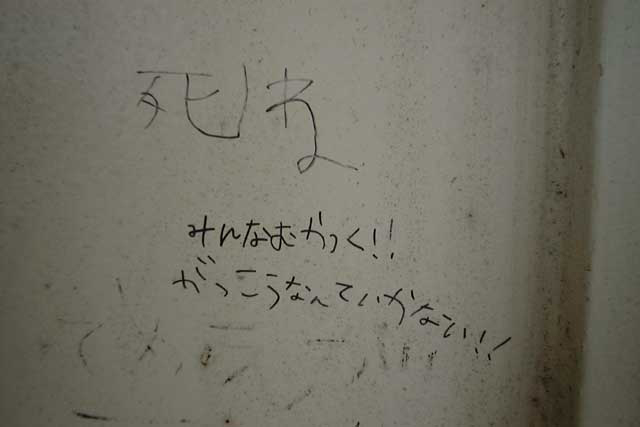 死ね
みんなむかつく!!
がっこうなんていかない!!